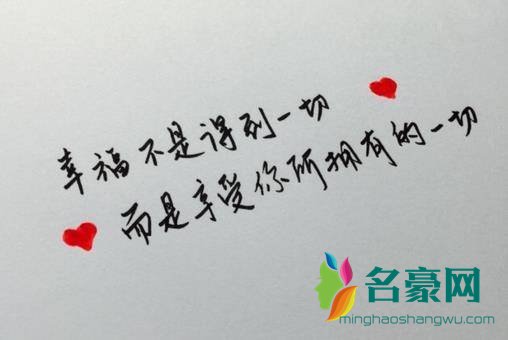 幸福不是得到一切
而是享受你所拥有的一切
名豪网
minghaoshangwu.com